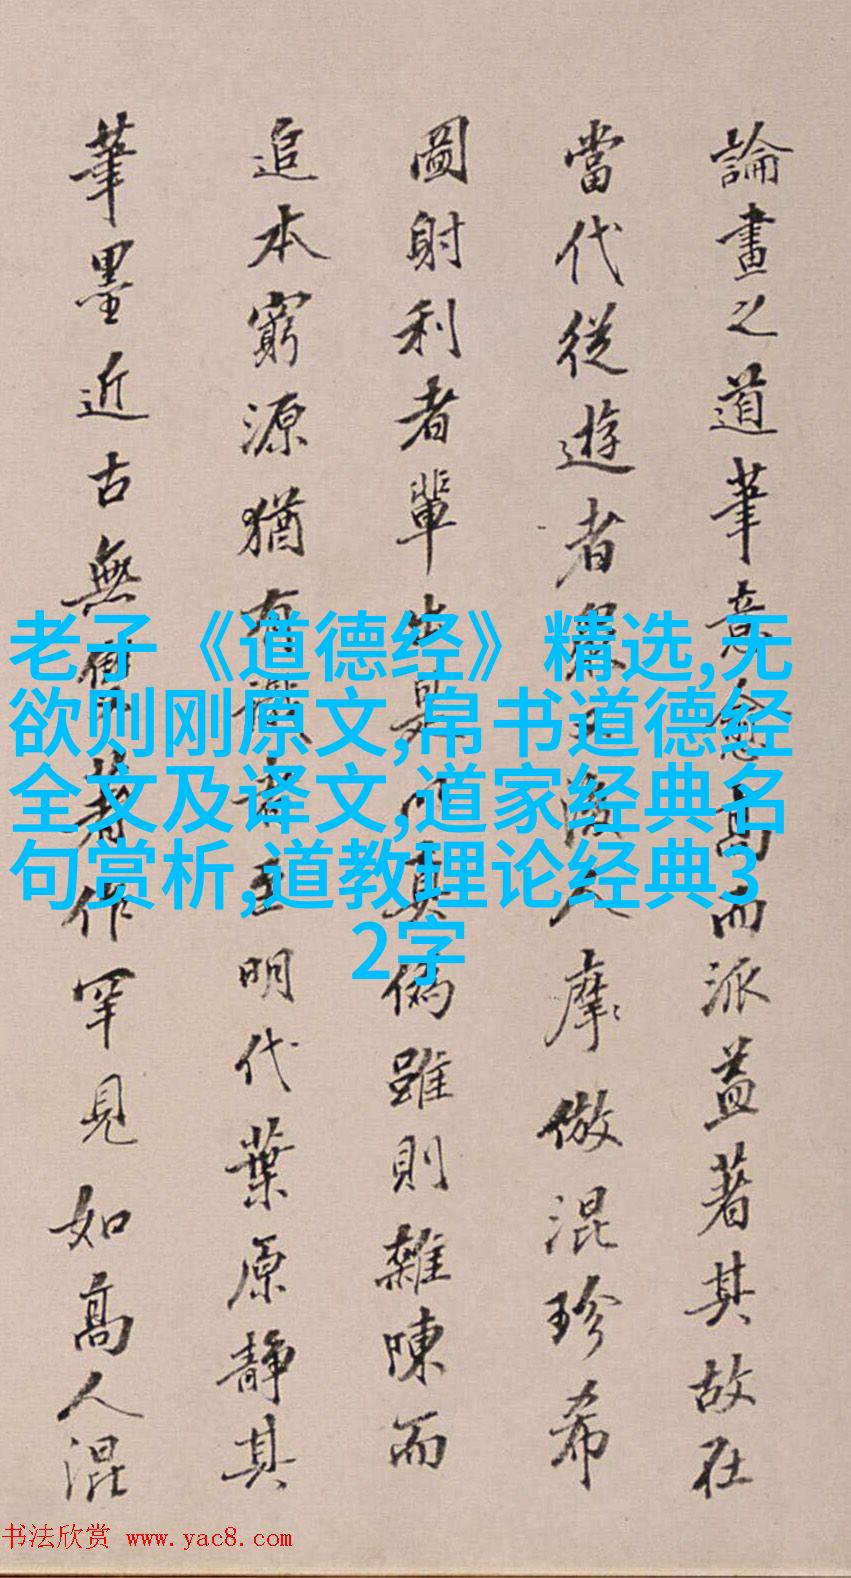 論畫之道筆意愈高而派益著其故在
當代從遊者眾後人摩倣混珍希
圖射利者輩出是以真偽雖則雜陳而
追本窮源猶有識者至明代葉原靜其
筆墨近古無甚著作罕見如高人混
老子《道德经》精选,无
欲则刚原文,帛书道德经
全文及译文,道家经典名
句赏析,道教理论经典3
2字
书法欣赏 www.yac8.com